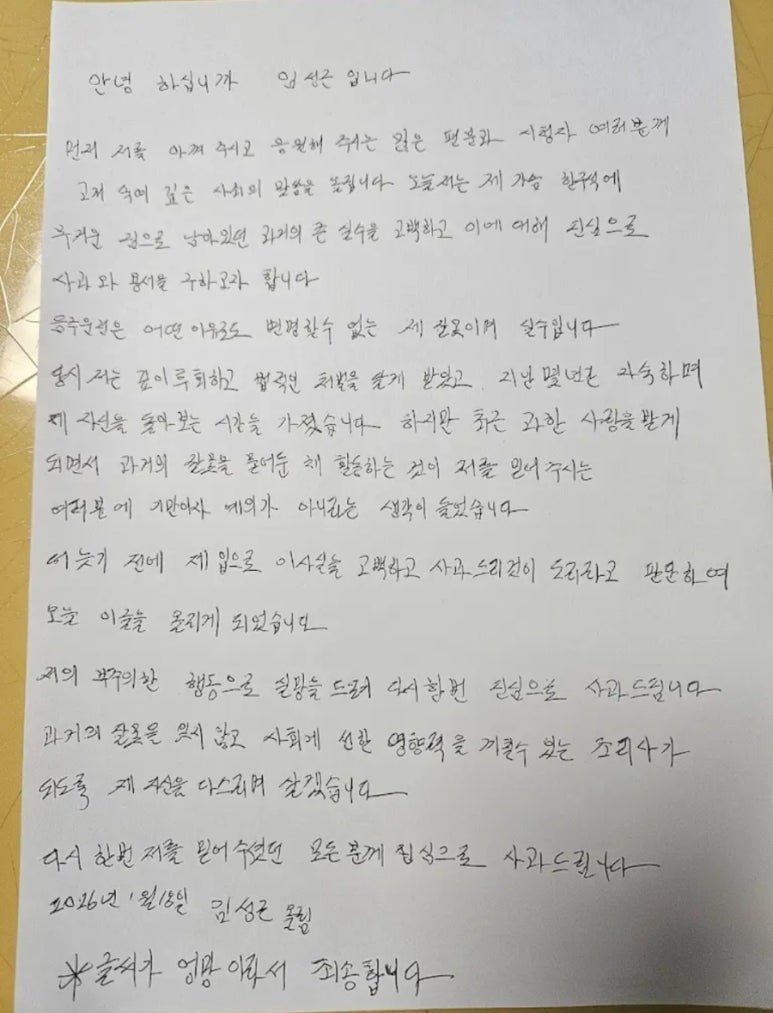 안녕 하십니까 임성근 입니다
먼저 저를 아껴 주시고 응원해 주시는 많은 팬분과 시청자 여러분께
고개 숙여 깊은 사죄의 말씀을 올립니다 오늘 저는 제 가슴 한구석에
무거운 짐으로 남아있던 과거의 큰 실수를 고백하고 이에 대해 진심으로
사과와 용서를 구하고자 합니다
음주운전은 어떤 이유로도 변명할수 없는 제 잘못이며 실수입니다
당시 저는 깊이 후회하고 법적인 처벌을 달게 받았고, 지난 몇년간 자숙하며
제 자신을 돌아보는 시간을 가졌습니다 하지만 최근 과한 사랑을 받게
되면서 과거의 잘못을 묻어둔 채 활동하는 것이 저를 믿어 주시는
여러분에 기만이자 예의가 아니라는 생각이 들었습니다
더 늦기 전에 제 입으로 이사실을 고백하고 사과 드리것이 도리라고 판단하여
오늘 이글을 올리게 되었습니다
저의 부주의한 행동으로 실망을 드려 다시한번 진심으로 사과드립니다
과거의 잘못을 잊지 않고 사회에 선한 영향력을 끼칠수 있는 조리사가
되도록 제 자신을 다스리며 살겠습니다
다시 한번 저를 믿어 주셨던 모든분께 진심으로 사과드립니다
2026년 1월 18일 임성근 올림
*글씨가 엉망 이라서 죄송합니다